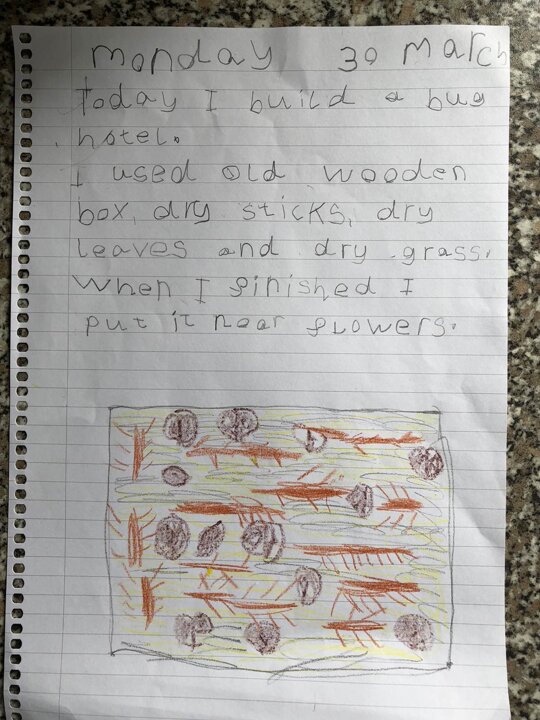 monday 30 March
Today I build a bug
hotel.
I used old wooden
box, dry sticks, dry
leaves and dry grass.
When I finished I
put it near flowers.